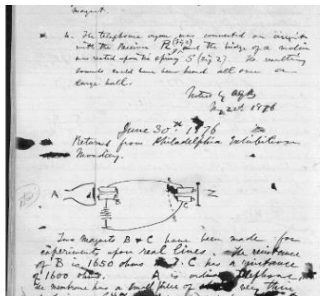 magnet.
4. The telephone organ was connected on circuit
with the Receiver P2 (Fig 1) and the bridge of a
was rested upon the spring S (fig 2). The resulting
sounds could have been heard all over a
large hall.
Noted by AGB
1876
June 30th 1876
Returned from Philadelphia Exhibition
Monday.
A B C Z
Two Magnets B & C have been made for
experiments upon real lines. The resistance
of B is 1650 ohms & C has a resistance
of 1600 ohms. A is ordinary Telephone,
the membrane has a small piece of very thin